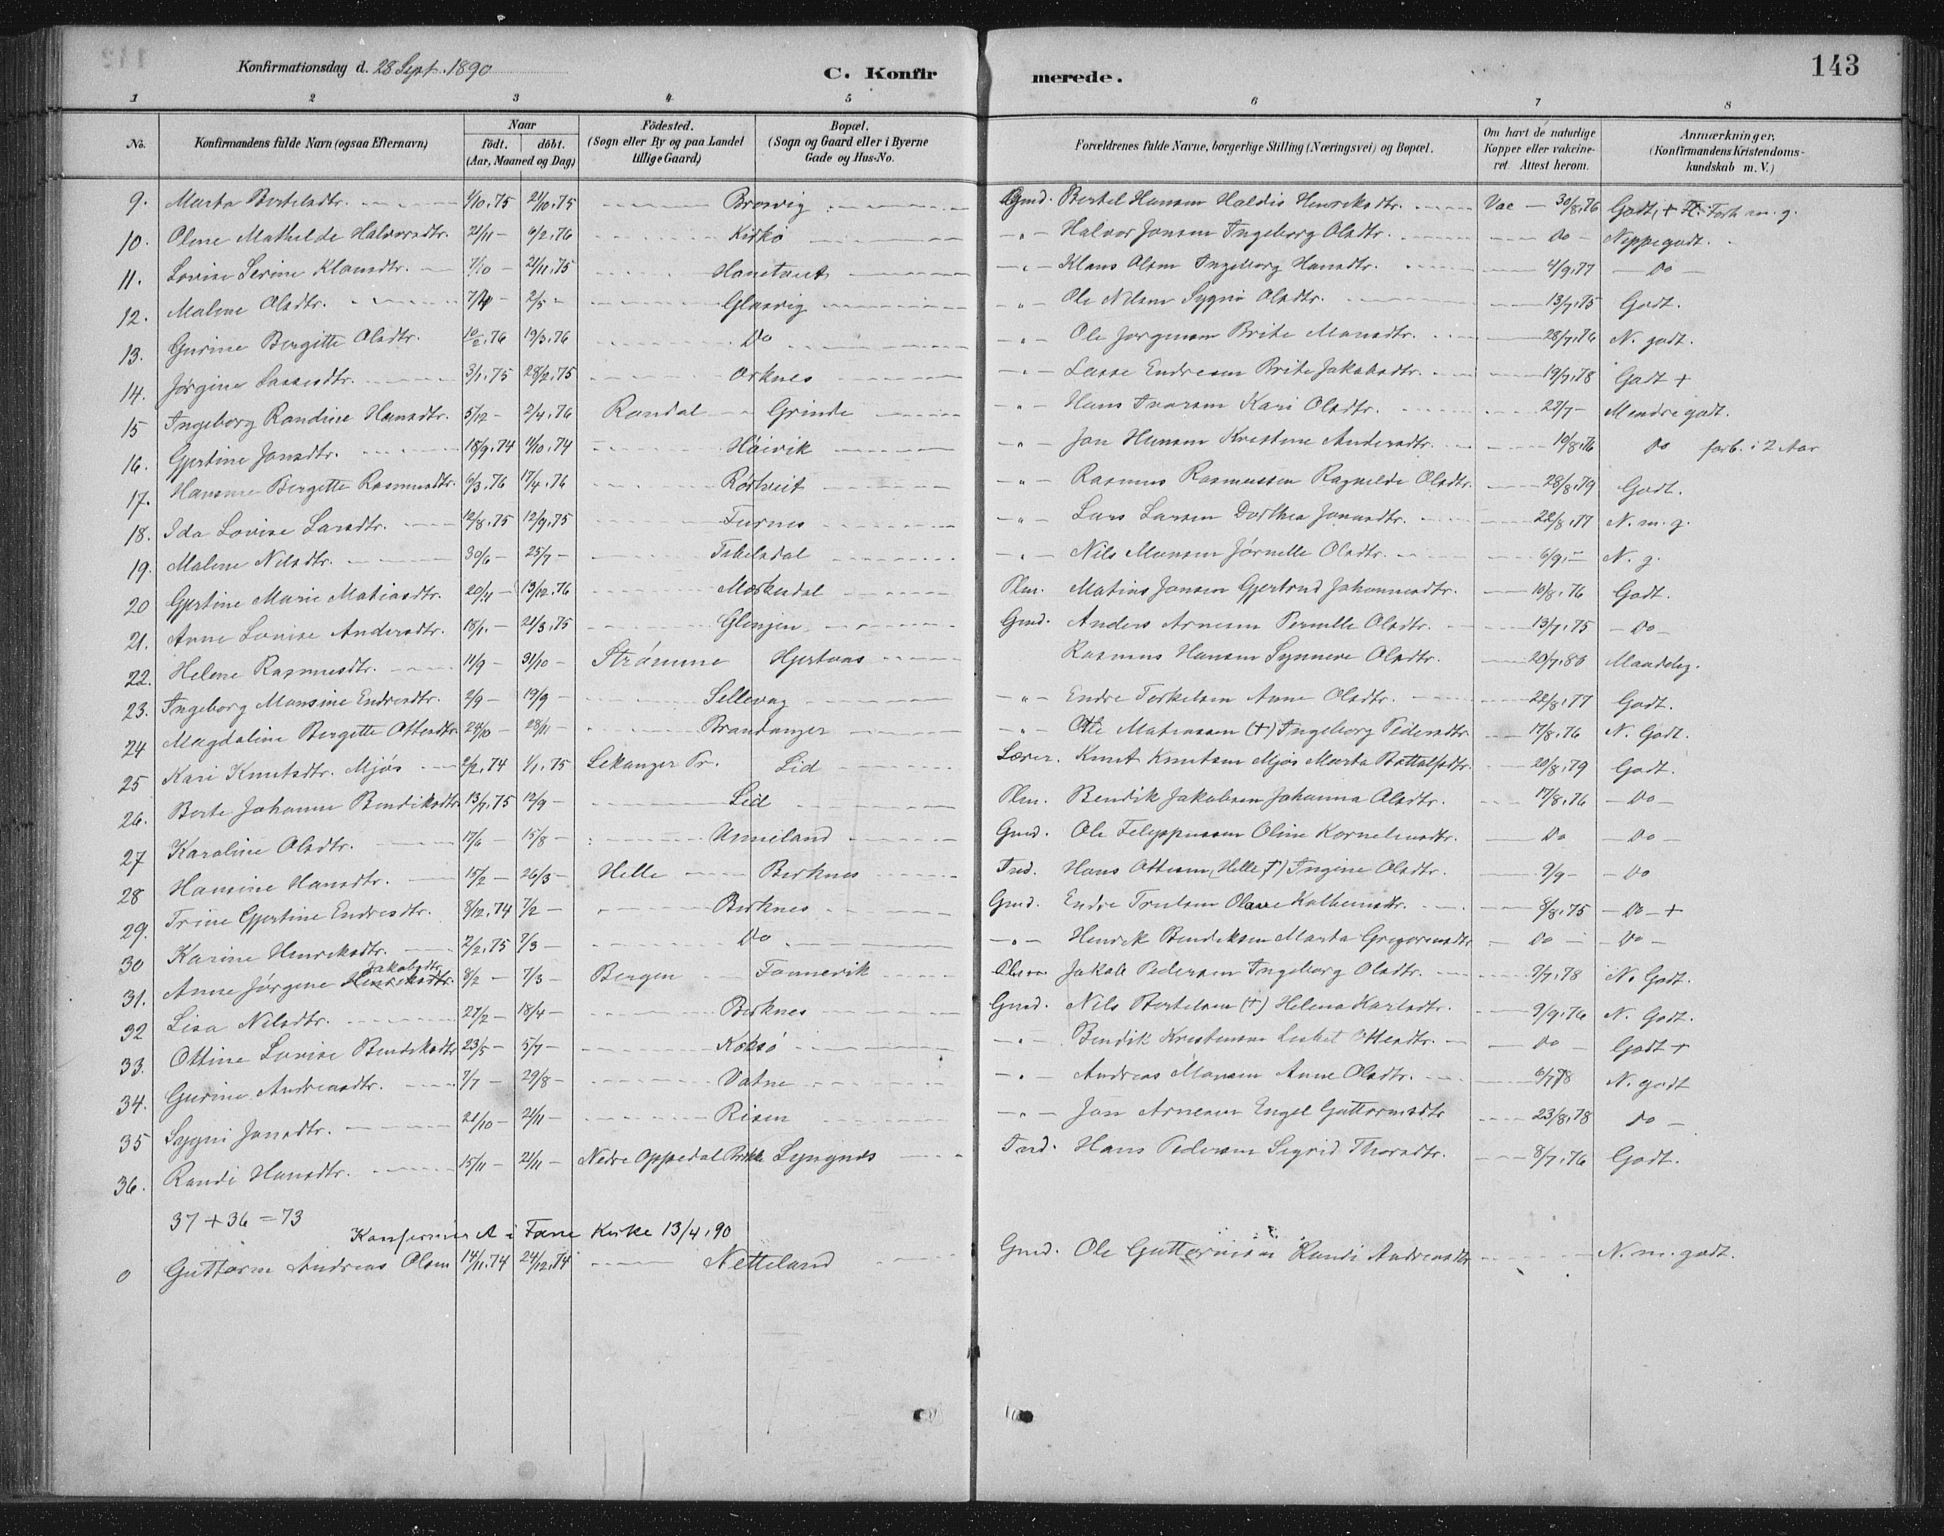 Konfirmationsdag d. 28 Sept. 1890 C. Konfirmerede. 143
1 2 3 4 5 6 7 8
No. Konfirmandens fulde Navn (ogsaa Efternavn) Naar födt. döbt. (Aar, Maaned og Dag) Födested. (Sogn eller By og paa Landet tillige Gaard) Bopæl. (Sogn og Gaard eller i Byerne Gade og Hus-No. Forældrenes fulde Navne, borgerlige Stilling (Næringsvei) og Bopæl. Om havt de naturlige Kopper eller vakcineret. Attest herom. Anmærkninger. (Konfirmandens Kristendomskundskab m. V.)
9. Marta Bertelsdtr. 1/10.75 21/10.75 Brosvig Gmd. Bertel Hansen Haldis Henriksdtr. Vac 30/8.76 Godt, + Fl. Forh. m. g.
10. Oline Mathilde Halvorsdtr. 21/11 6/2.76 Kirkö Halvor Jonsen Ingeborg Olsdtr. Do Neppe godt.
11. Lovise Serine Klausdtr. 7/10 21/11.75 Klaus Olsen Ingeborg Hansdtr. 4/9.77 Do
12. Malene Olsdtr. 2/5 Glosvig Ole Nilsen Sygni Olsdtr. 13/7.75 Godt.
13. Gurine Bergitte Olsdtr. 10/2.76 19/3.76 Do Ole Jørgensen Brite Monsdtr. 28/7.76 N. godt.
14. Jørgine Lassesdtr. 3/1.75 28/2.75 Orknes Lasse Endresen Brite Jakobsdtr. 19/7.78 Godt +
15 Ingeborg Randine Hansdtr. 5/12 2/4.76 Randal Grinde Hans Ivarsen Kari Olsdtr. 27/7 Mindre godt.
16. Gjertine Jonsdtr. 18/9.74 11/10.74 Höivik Jon Hansen Kristine Andersdtr. 19/8.76 Do forb. i 2 Aar
17. Hansine Bergitte Rasmusdtr. 6/3.76 17/4.76 Rörtveit Rasmus Rasmussen Ragnilde Olsdtr. 28/8.79 Godt.
18. Ida Lovise Larsdtr. 12/8.75 12/9.75 Furnes Lars Larsen Dorthea Jonasdtr. 22/8.77 N. m. g.
19. Malene Nilsdtr. 30/6 25/7 Nils Monsen Jørnelle Olsdtr. 6/9 N. g.
20 Gjertine Marie Matiasdtr. 20/11 13/12.76 Morkedal Plm. Matias Jonsen Gjertrud Johannesdtr. 10/8.76 Godt.
21. Anne Lovise Andersdtr. 18/1. 21/3.75 Glenjen Gmd. Anders Arnesen Pernelle Olsdtr. 13/7.75 Do
22. Helene Rasmusdtr. 11/9 31/10 Strømme Hjertaas Rasmus Hansen Synneve Olsdtr. 20/7.80 Maadelig.
23. Ingeborg Monsine Endresdtr. 2/9 19/9 Sellevag Endre Torkelsen Anne Olsdtr. 22/8.77 Godt.
24 Magdaline Bergette Ottesdtr. 24/10 28/11 Brandanger Otte Matiassen (+) Ingeborg Pedersdtr. 17/8.76 N. Godt.
25 Kari Knutsdtr. Mjøs 2/12.74 1/1.75 Lekanger Pr. Lid Lærer. Knut Knutsen Mjös Marta Bottolfsdtr. 20/8.79 Godt.
26. Berte Johanne Bendiksdtr. 13/7.75 12/9 Lid Plm. Bendik Jakobsen Johanna Olsdtr. 17/8.76 Do
27 Karoline Olsdtr. 17/6 15/8 Unneland Gmd. Ole Felippussen Oline Korneliusdtr. Do Do
28 Hansine Hansdtr. 15/2 26/3 Helle Berknes Ind. Hans Ottesen (Helle +) Ingine Olsdtr. 9/9 Do
29. Trine Gjertine Endresdtr. 8/12.74 7/2 Berknes Gmd. Endre Trulsen Olave Kolbensdtr. 8/8.75 Do +
30 Karine Henriksdtr. 2/2.75 7/3 Do Henrik Bendiksen Marta Gregoriusdtr. Do Do
31. Anne Jørgene Henriksdtr. Jakobsdtr. 8/2 7/3 Bergen Tonnevik Jakob Pedersen Ingeborg Olsdtr. 9/7.78 N. Godt.
32 Lisa Nilsdtr. 27/2 18/4 Berknes Gmd. Nils Bertelsen (+) Helena Karlsdtr. 9/9.76 N. Godt.
33. Ottine Lovise Bendiksdtr 23/5 5/7 Kolsö Bendik Kristensen Lisbet Ottesdtr. Do Godt +
34. Gurine Andreasdtr. 7/7 29/8 Vatne Andreas Monsen Anne Olsdtr. 6/7.78 N. godt
35 Sygni Jonsdtr. 21/10 21/11 Risen Jon Arnesen Engel Guttormsdtr 23/8.78 Do
36. Randi Hansdtr. 15/11 21/11 Nedre Oppedal Brekke Lyngnes Ind. Hans Pedersen Sigrid Thorsdtr. 8/7.76 Godt.
37 + 36 = 73
Konfirmeret i Fane Kirke 13/4.90
0 Guttorm Andreas Olsen 14/11.74 24/12.74 Netteland Gmd. Ole Guttormsen Randi Andreasdtr N. m. godt.